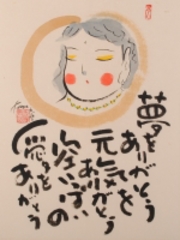 夢を
ありがとう
元気を
ありがとう
いっぱいの
愛を
ありがとう